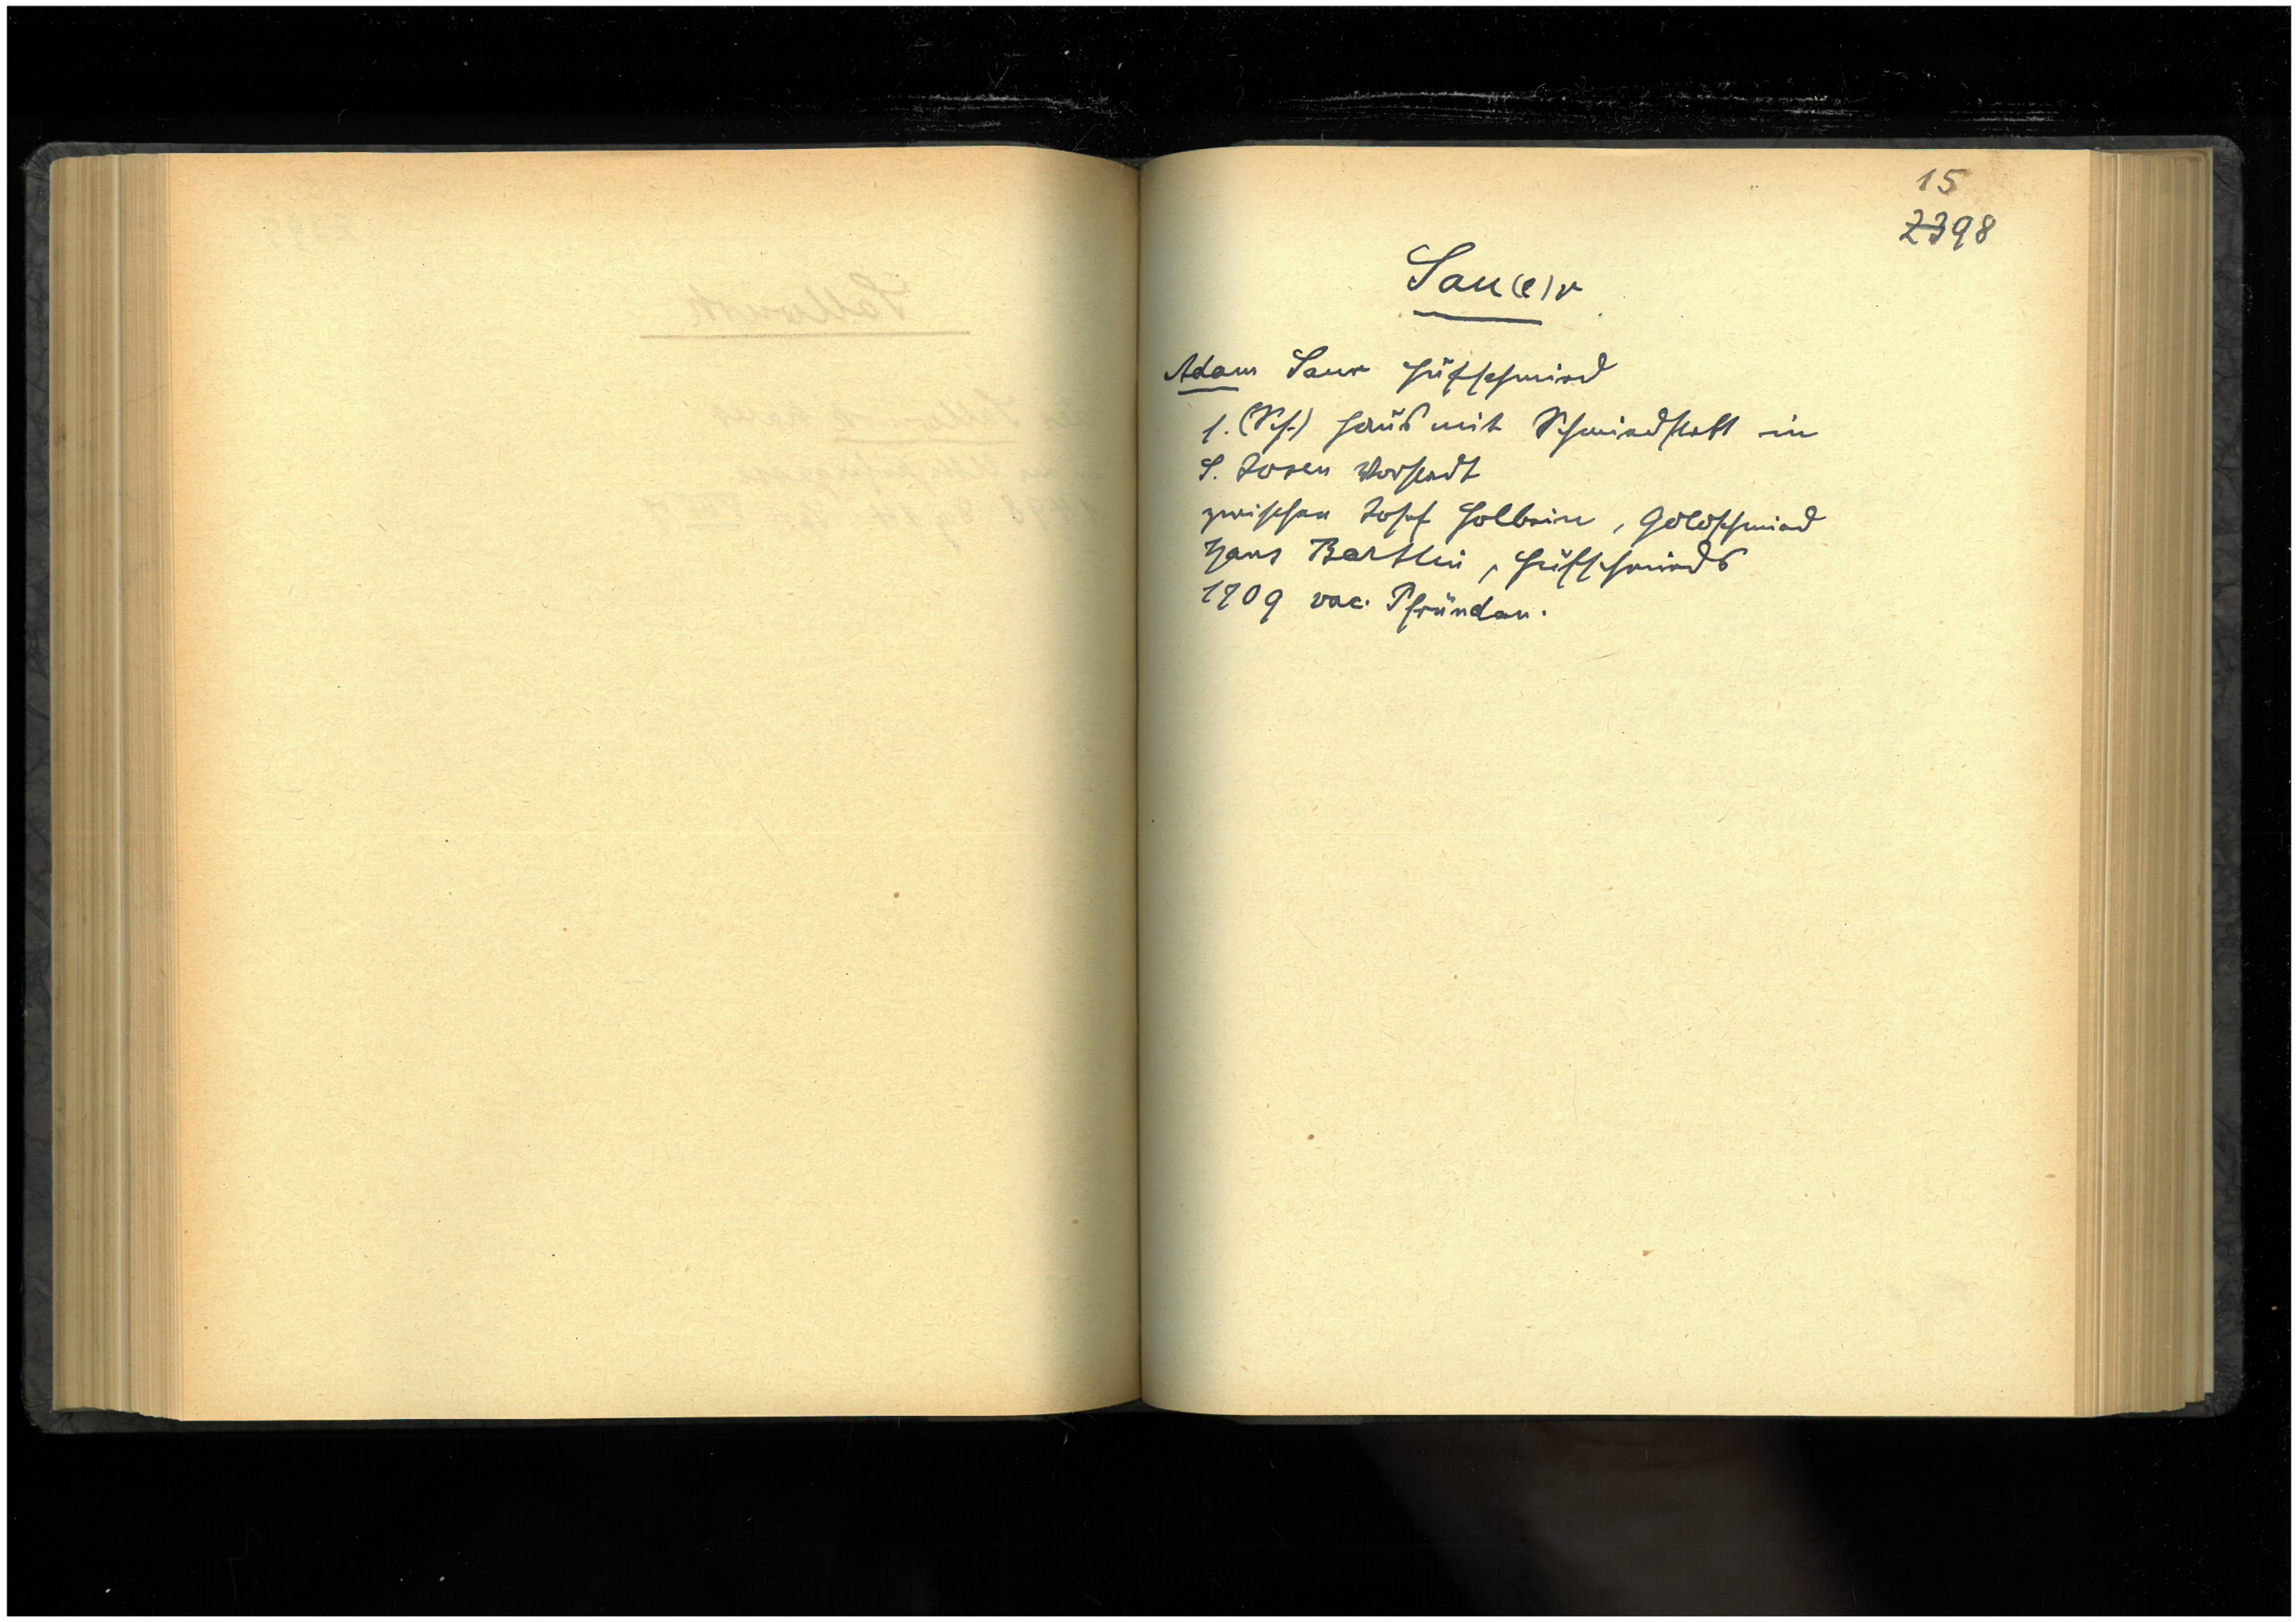 15
2398
Sau(e)r
Adam Saur Hufschmied
1. (Sch) Haus mit Schmiedstatt in
S. Josen Vorstadt
zwischen Josef Holbein, Goldschmied
Hans Bertlin, Hufschmieds
1709 vac. Pfründen.